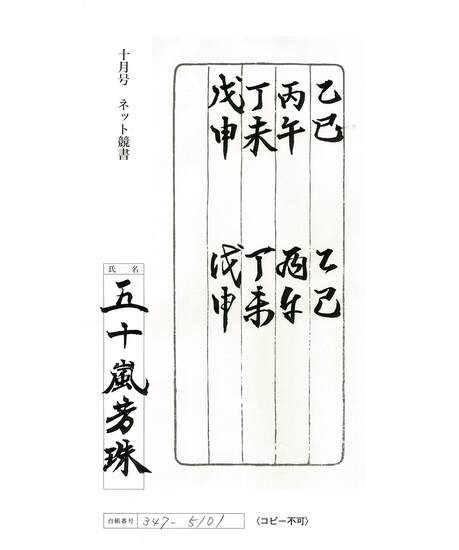 乙巳 乙巳
丙午 丙午
丁未 丁未
戊申 戊申
十月号 ネット競書
氏名
五十嵐芳珠
台帳番号 347-5101
(コピー不可)